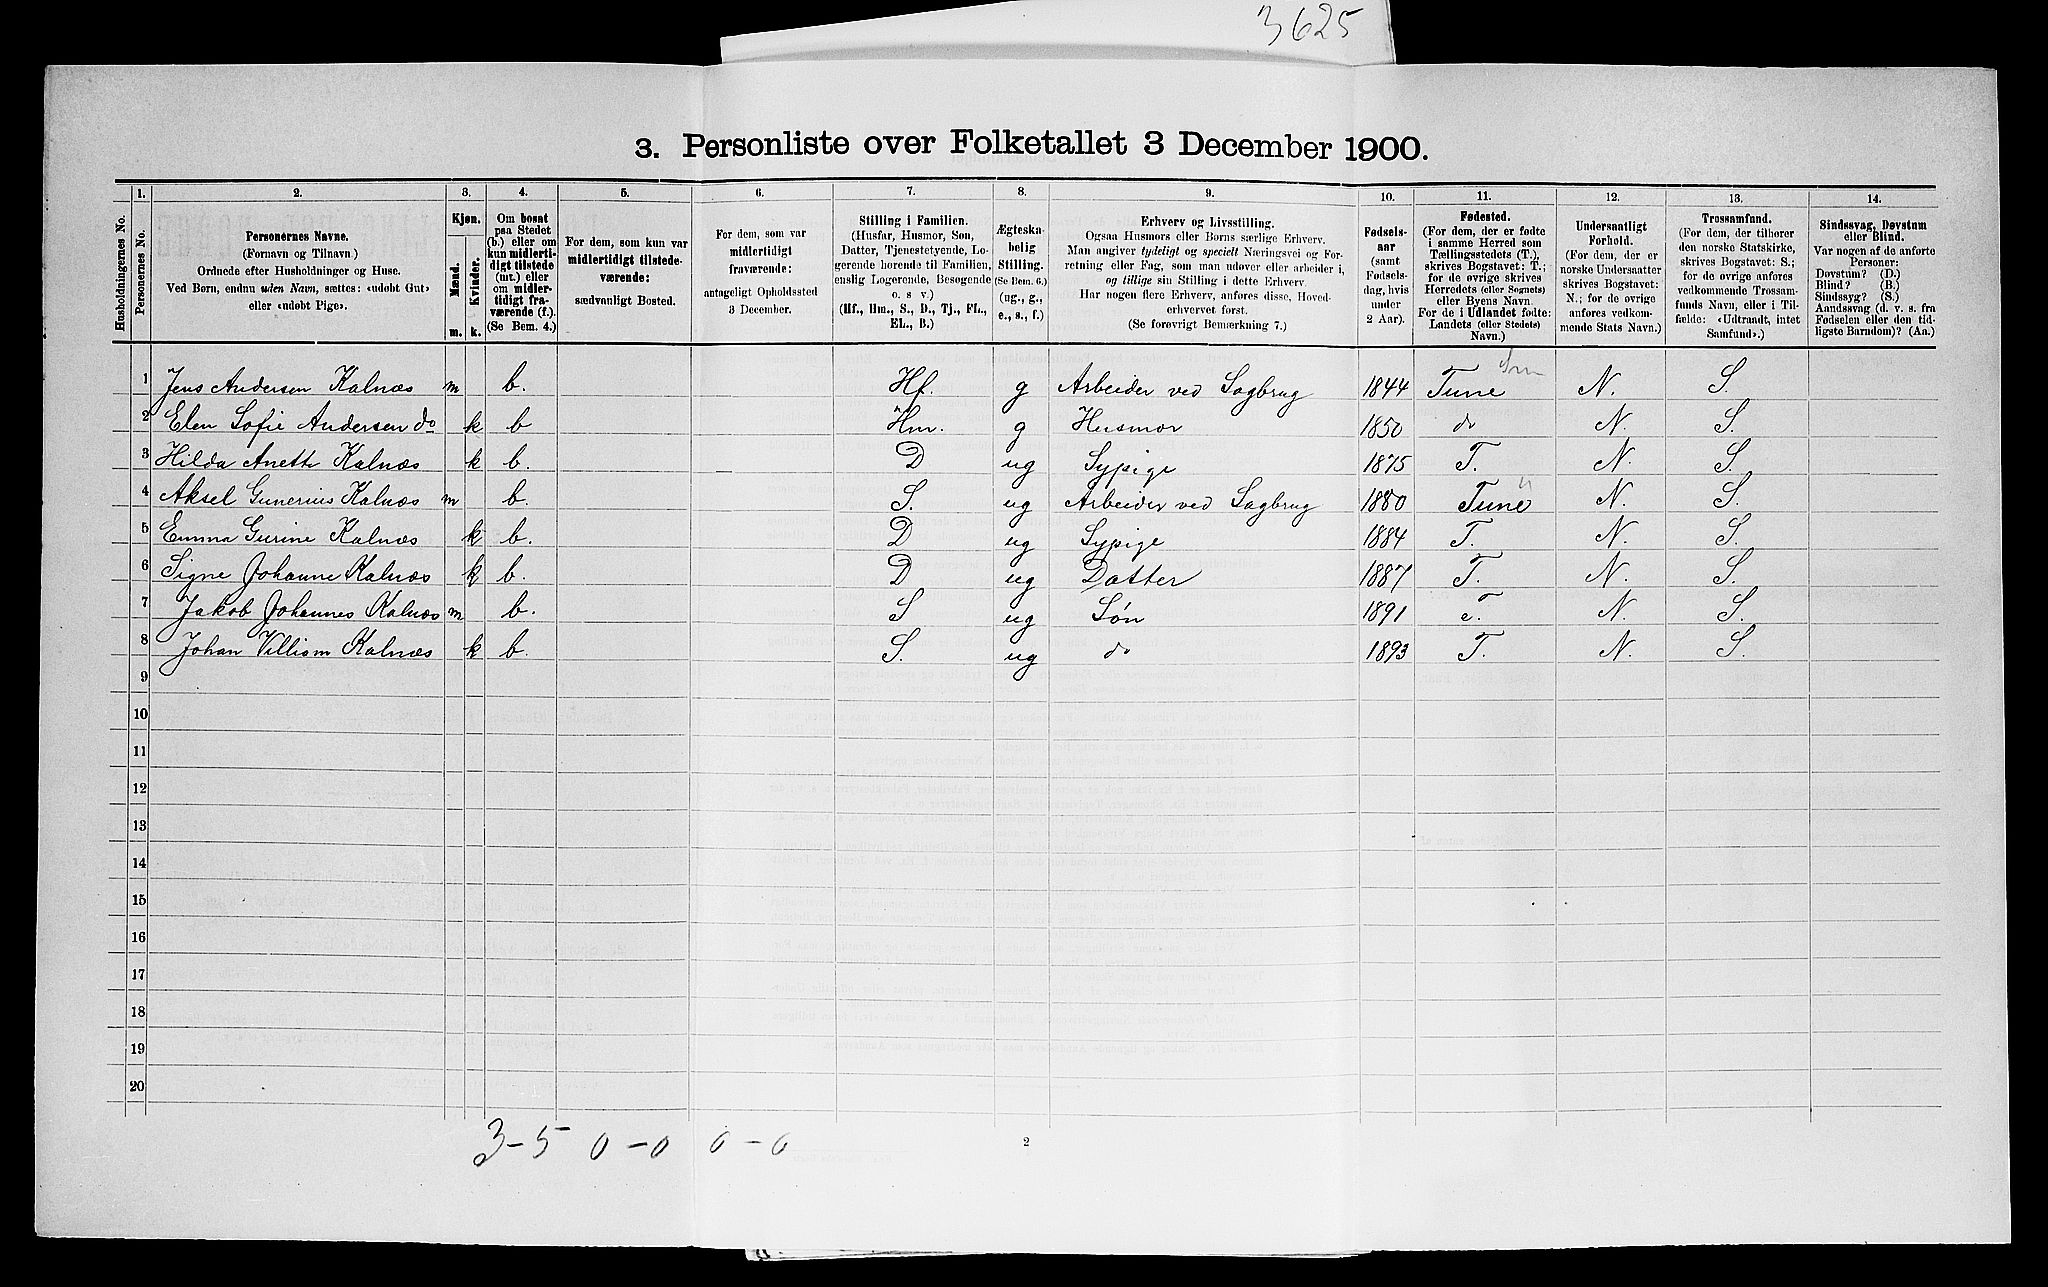 3625
3. Personliste over Folketallet 3 December 1900.
Husholdningernes No.
1. Personernes No.
2. Personernes Navne.
(Fornavn og Tilnavn.)
Ordnede efter Husholdninger og Huse.
Ved Børn, endnu uden Navn, sættes: «udøbt Gut»
eller «udøbt Pige».
3. Kjøn.
Mænd. m.
Kvinder. k.
4. Om bosat
paa Stedet
(b.) eller om
kun midlerti-
digt tilstede
(mt.) eller
om midler-
tidigt fra-
værende (f.).
(Se Bem. 4.)
5. For dem, som kun var
midlertidigt tilstede-
værende:
sædvanligt Bosted.
6. For dem, som var
midlertidigt
fraværende:
antageligt Opholdssted
3 December.
7. Stilling i Familien.
(Husfar, Husmor, Søn,
Datter, Tjenestetyende, Lo-
gerende hørende til Familien,
enslig Logerende, Besøgende
o. s v.)
(Hf., Hm., S., D., Tj., FL.,
EL., B.)
8. Ægteska-
belig
Stilling.
(Se Bem. 6.)
(ug., g.,
e., s., f.)
9. Erhverv og Livsstilling.
Ogsaa Husmors eller Børns særlige Erhverv.
Man angiver tydeligt og specielt Næringsvei og For-
retning eller Fag, som man udøver eller arbeider i,
og tillige sin Stilling i dette Erhverv.
Har nogen flere Erhverv, anføres disse, Hoved-
erhvervet først.
(Se forøvrigt Bemærkning 7.)
10. Fødsels-
aar
(samt
Fødsels-
dag, hvis
under
2 Aar).
11. Fødested.
(For dem, der er fødte
i samme Herred som
Tællingsstedets (T.),
skrives Bogstavet: T.;
for de øvrige skrives
Herredets (eller Sognets)
eller Byens Navn.
For de i Udlandet fødte:
Landets (eller Stedets)
Navn.)
12. Undersaatligt
Forhold.
(For dem, der er
norske Undersaatter
skrives Bogstavet:
N.; for de øvrige
anføres vedkom-
mende Stats Navn.)
13. Trossamfund.
(For dem, der tilhører
den norske Statskirke,
skrives Bogstavet: S.;
for de øvrige anføres
vedkommende Trossam-
funds Navn, eller i Til-
fælde: «Udtraadt, intet
Samfund».)
14. Sindssvag, Døvstum
eller Blind.
Var nogen af de anførte
Personer:
Døvstum? (D.)
Blind? (B.)
Sindssyg? (S.)
Aandssvag (d. v. s. fra
Fødselen eller den tid-
ligste Barndom)? (Aa.)
1 Jens Andersen Kalnæs m b. Hf. g Arbeider ved Sagbrug 1844 Tune N. S.
2 Elen Sofie Andersen do k b Hm. g Husmor 1850 do N. S.
3 Hilda Aneth Kalnæs k b. D ug Sypige 1875 T. N. S.
4 Aksel Gunerius Kalnæs m b. S. ug Arbeider ved Sagbrug 1880 Tune N. S.
5 Emma Gurine Kalnæs k b. D ug Sypige 1884 T. N. S.
6 Signe Johanne Kalnæs k b. D ug Datter 1887 T. N. S.
7 Jakob Johannes Kalnæs m b. S ug Søn 1891 T. N. S.
8 Johan Villiam Kalnæs k b. S. ug do 1893 T. N. S.
9
10
11
12
13
14
15
16
17
18
19
20
3-5 0-0 0-0
2